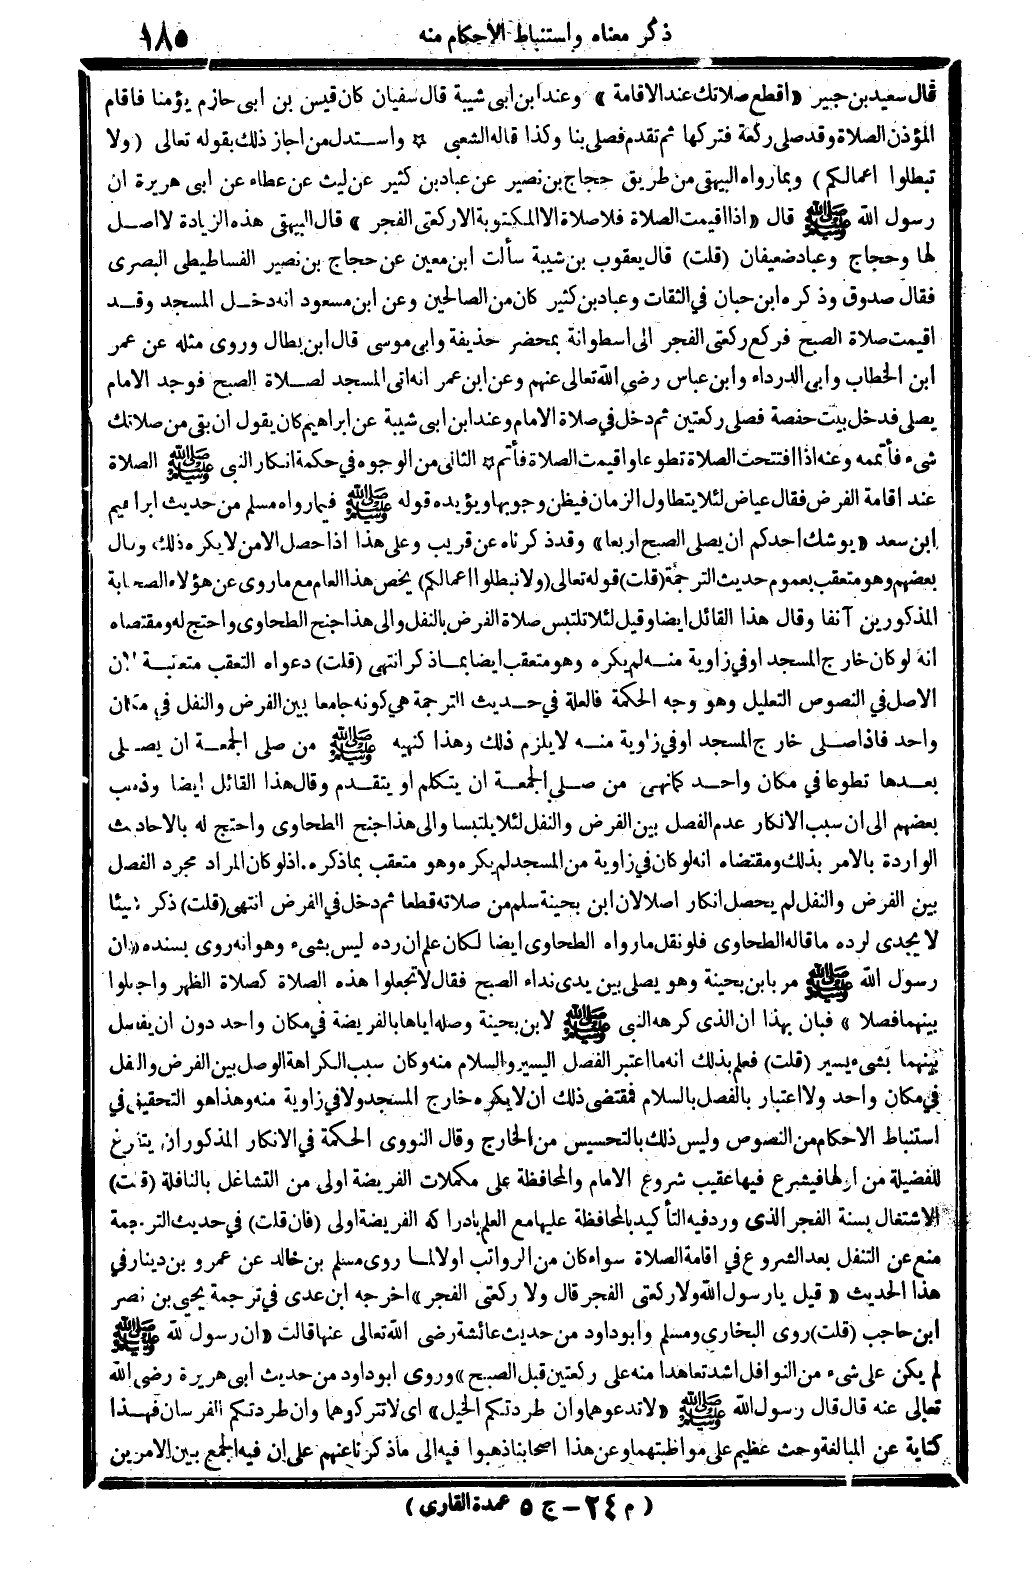 ذكر معناه واستنباط الأحكام منه ١٨٥
قال سعيد بن جبير «اقطع صلاتك عند الاقامة» وعند ابن ابى شيبة قال سفيان كان قيس بن ابى حازم يؤمنا فاقام
المؤذن الصلاة وقد صلى ركعة فتركها ثم تقدم فصلى بنا وكذا قاله الشعبى ☆ واستدل من اجاز ذلك بقوله تعالى (ولا
تبطلوا اعمالكم) وبما رواه البيهقى من طريق حجاج بن نصير عن عباد بن كثير عن ليث عن عطاء عن ابى هريرة ان
رسول الله ﷺ قال «اذا اقيمت الصلاة فلا صلاة الا المكتوبة الا ركعتى الفجر» قال البيهقى هذه الزيادة لا اصل
لها وحجاج وعباد ضعيفان (قلت) قال يعقوب بن شيبة سألت ابن معين عن حجاج بن نصير الفساطيطى البصرى
فقال صدوق وذكره ابن حبان في الثقات وعباد بن كثير كان من الصالحين وعن ابن مسعود انه دخل المسجد وقد
اقيمت صلاة الصبح فركع ركعتى الفجر الى اسطوانة بمحضر حذيفة وابى موسى قال ابن بطال وروى مثله عن عمر
ابن الخطاب وابى الدرداء وابن عباس رضى الله تعالى عنهم وعن ابن عمر انه اتى المسجد لصلاة الصبح فوجد الامام
يصلى فدخل بيت حفصة فصلى ركعتين ثم دخل في صلاة الامام وعند ابن ابى شيبة عن ابراهيم كان يقول ان بقى من صلاتك
شىء فأتممه وعنه اذا افتتحت الصلاة تطوعا واقيمت الصلاة فأتم ☆ الثانى من الوجوه في حكمة انكار النبى ﷺ الصلاة
عند اقامة الفرض فقال عياض لئلا يتطاول الزمان فيظن وجوبها ويؤيده قوله ﷺ فيما رواه مسلم من حديث ابراهيم
ابن سعد «يوشك احدكم ان يصلى الصبح اربعا» وقد ذكرناه عن قريب وعلى هذا اذا حصل الامن لا يكره ذلك وقال
بعضهم وهو متعقب بعموم حديث الترجمة (قلت) قوله تعالى (ولا تبطلوا اعمالكم) يخص هذا العام مع ما روى عن هؤلاء الصحابة
المذكورين آنفا وقال هذا القائل ايضا وقيل لئلا تلتبس صلاة الفرض بالنفل والى هذا جنح الطحاوى واحتج له ومقتضاه
انه لو كان خارج المسجد او في زاوية منه لم يكره وهو متعقب ايضا بما ذكر انتهى (قلت) دعواه التعقب متعقبة لان
الاصل في النصوص التعليل وهو وجه الحكمة فالعلة في حديث الترجمة هي كونه جامعا بين الفرض والنفل في مكان
واحد فاذا صلى خارج المسجد او في زاوية منه لا يلزم ذلك وهذا كنهيه ﷺ من صلى الجمعة ان يصلى
بعدها تطوعا في مكان واحد كما نهى من صلى الجمعة ان يتكلم او يتقدم وقال هذا القائل ايضا وذهب
بعضهم الى ان سبب الانكار عدم الفصل بين الفرض والنفل لئلا يلتبسا والى هذا جنح الطحاوى واحتج له بالاحاديث
الواردة بالامر بذلك ومقتضاه انه لو كان في زاوية من المسجد لم يكره وهو متعقب بما ذكره. اذ لو كان المراد مجرد الفصل
بين الفرض والنفل لم يحصل انكار اصلا لان ابن بحينة سلم من صلاته قطعا ثم دخل في الفرض انتهى (قلت) ذكر شيئا
لا يجدى لرده ما قاله الطحاوى فلو نقل ما رواه الطحاوى ايضا لكان علم ان رده ليس بشىء وهو انه روى بسنده «ان
رسول الله ﷺ مر بابن بحينة وهو يصلى بين يدى نداء الصبح فقال لا تجعلوا هذه الصلاة كصلاة الظهر واجعلوا
بينهما فصلا» فبان بهذا ان الذى كرهه النبى ﷺ لابن بحينة وصله اياها بالفريضة في مكان واحد دون ان يفصل
بينهما بشىء يسير (قلت) فعلم بذلك انه ما اعتبر الفصل اليسير والسلام منه وكان سبب الكراهة الوصل بين الفرض والنفل
في مكان واحد ولا اعتبار بالفصل بالسلام فمقتضى ذلك ان لا يكره خارج المسجد ولا في زاوية منه وهذا هو التحقيق في
استنباط الاحكام من النصوص وليس ذلك بالتحسيس من الخارج وقال النووى الحكمة في الانكار المذكور ان يتفرغ
للفضيلة من اولها فيشرع فيها عقيب شروع الامام والمحافظة على مكملات الفريضة اولى من التشاغل بالنافلة (قلت)
الاشتغال بسنة الفجر الذى ورد فيه التأكيد بالمحافظة عليها مع العلم بادراكه الفريضة اولى (فان قلت) في حديث الترجمة
منع عن التنفل بعد الشروع في اقامة الصلاة سواء كان من الرواتب او لا لما روى مسلم بن خالد عن عمرو بن دينار في
هذا الحديث «قيل يا رسول الله ولا ركعتى الفجر قال ولا ركعتى الفجر» اخرجه ابن عدى في ترجمة يحيى بن نصر
ابن حاجب (قلت) روى البخارى ومسلم وابو داود من حديث عائشة رضى الله تعالى عنها قالت «ان رسول لله ﷺ
لم يكن على شىء من النوافل اشد تعاهدا منه على ركعتين قبل الصبح» وروى ابو داود من حديث ابى هريرة رضى الله
تعالى عنه قال قال رسول الله ﷺ «لا تدعوهما وان طردتكم الخيل» اى لا تتركوهما وان طردتكم الفرسان فهذا
كناية عن المبالغة وحث عظيم على مواظبتهما وعن هذا اصحابنا ذهبوا فيه الى ما ذكرنا عنهم على ان فيه الجمع بين الامرين
(م ٢٤ – ج ٥ عمدة القارى)